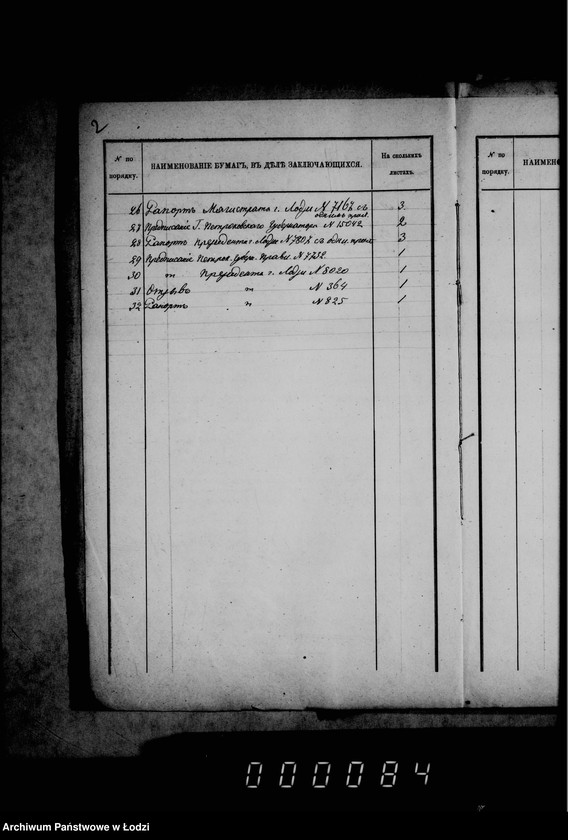 2
№ по порядку.
НАИМЕНОВАНІЕ БУМАГЪ, ВЪ ДѢЛѢ ЗАКЛЮЧАЮЩИХСЯ.
На сколькихъ листахъ.
№ по порядку.
26 Рапортъ Магистрата г. Лодзи № 7167 съ 3
27 Предписаніе Г. Петроковскаго Губернатора № 15042 2
28 Рапортъ Президента г. Лодзи № 7802 съ одн. прил. 3
29 Предписаніе Петрок. Губер. Правл. № 7732 1
30 " Президента г. Лодзи № 8020 1
31 Отзывъ " № 364 1
32 Рапортъ " № 825 1
000084
Archiwum Państwowe w Łodzi